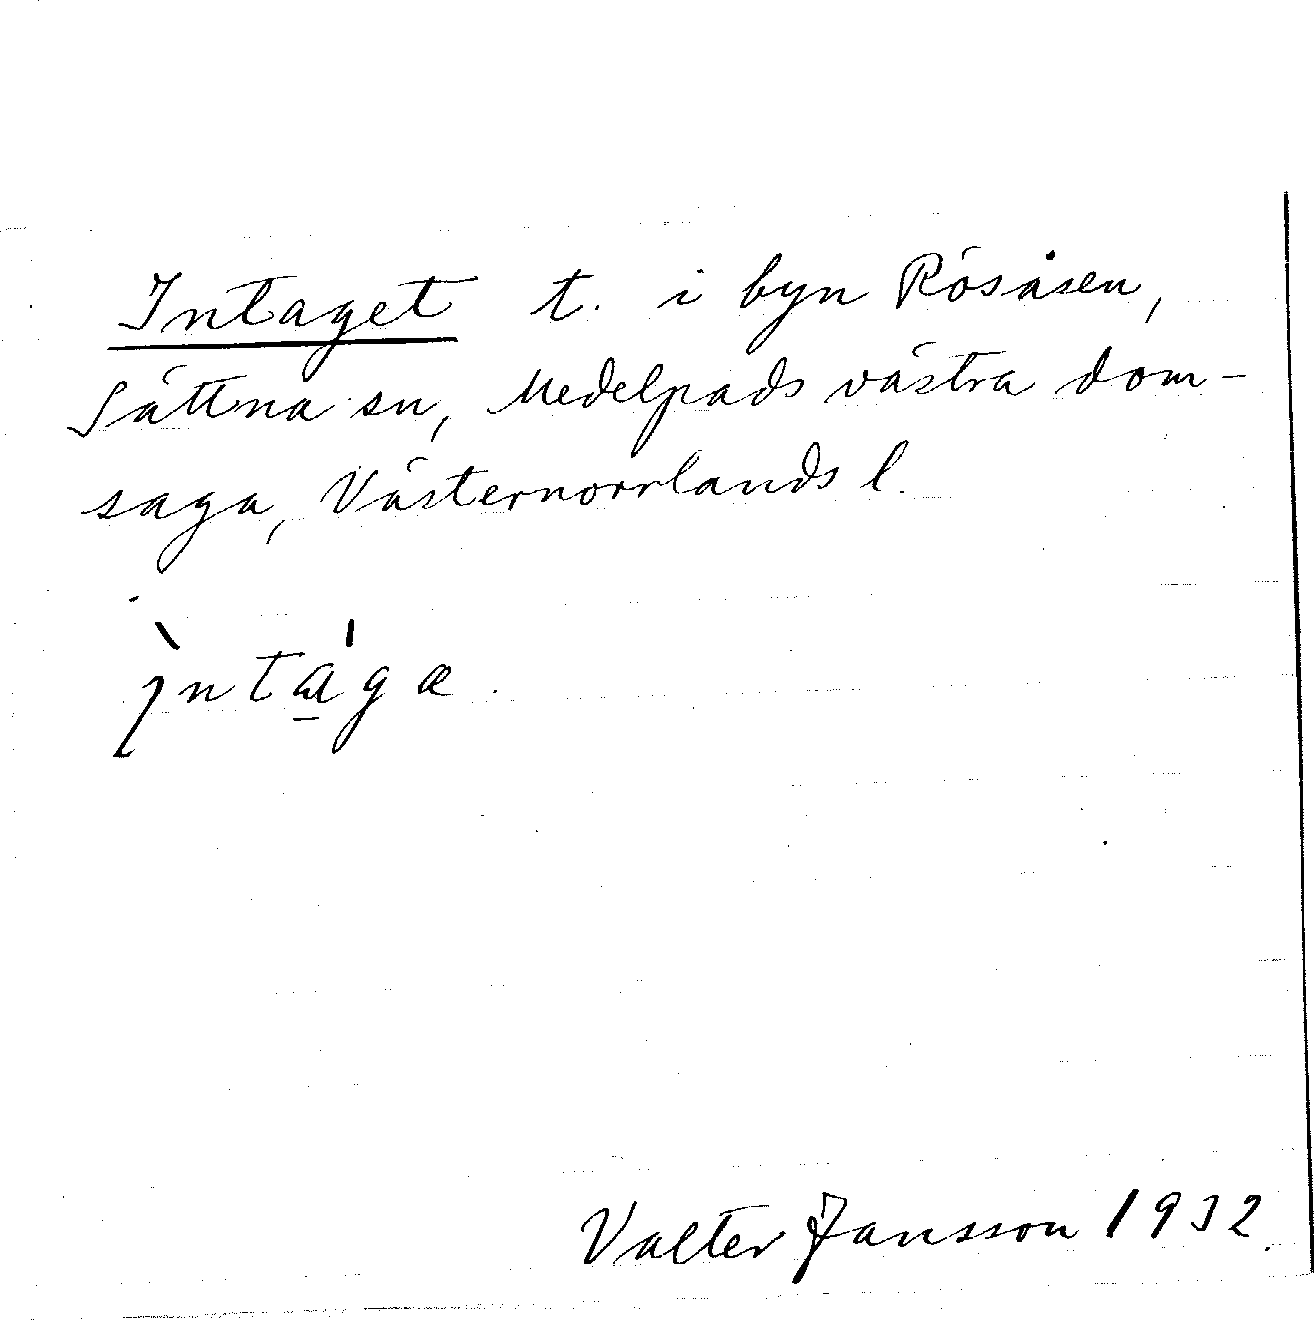 Intaget t. i byn Rösåsen,
Sättna sn, Medelpads västra dom-
saga, Västernorrlands l.
ı̨̀nta̱̍gæ.
Valter Jansson 1932.